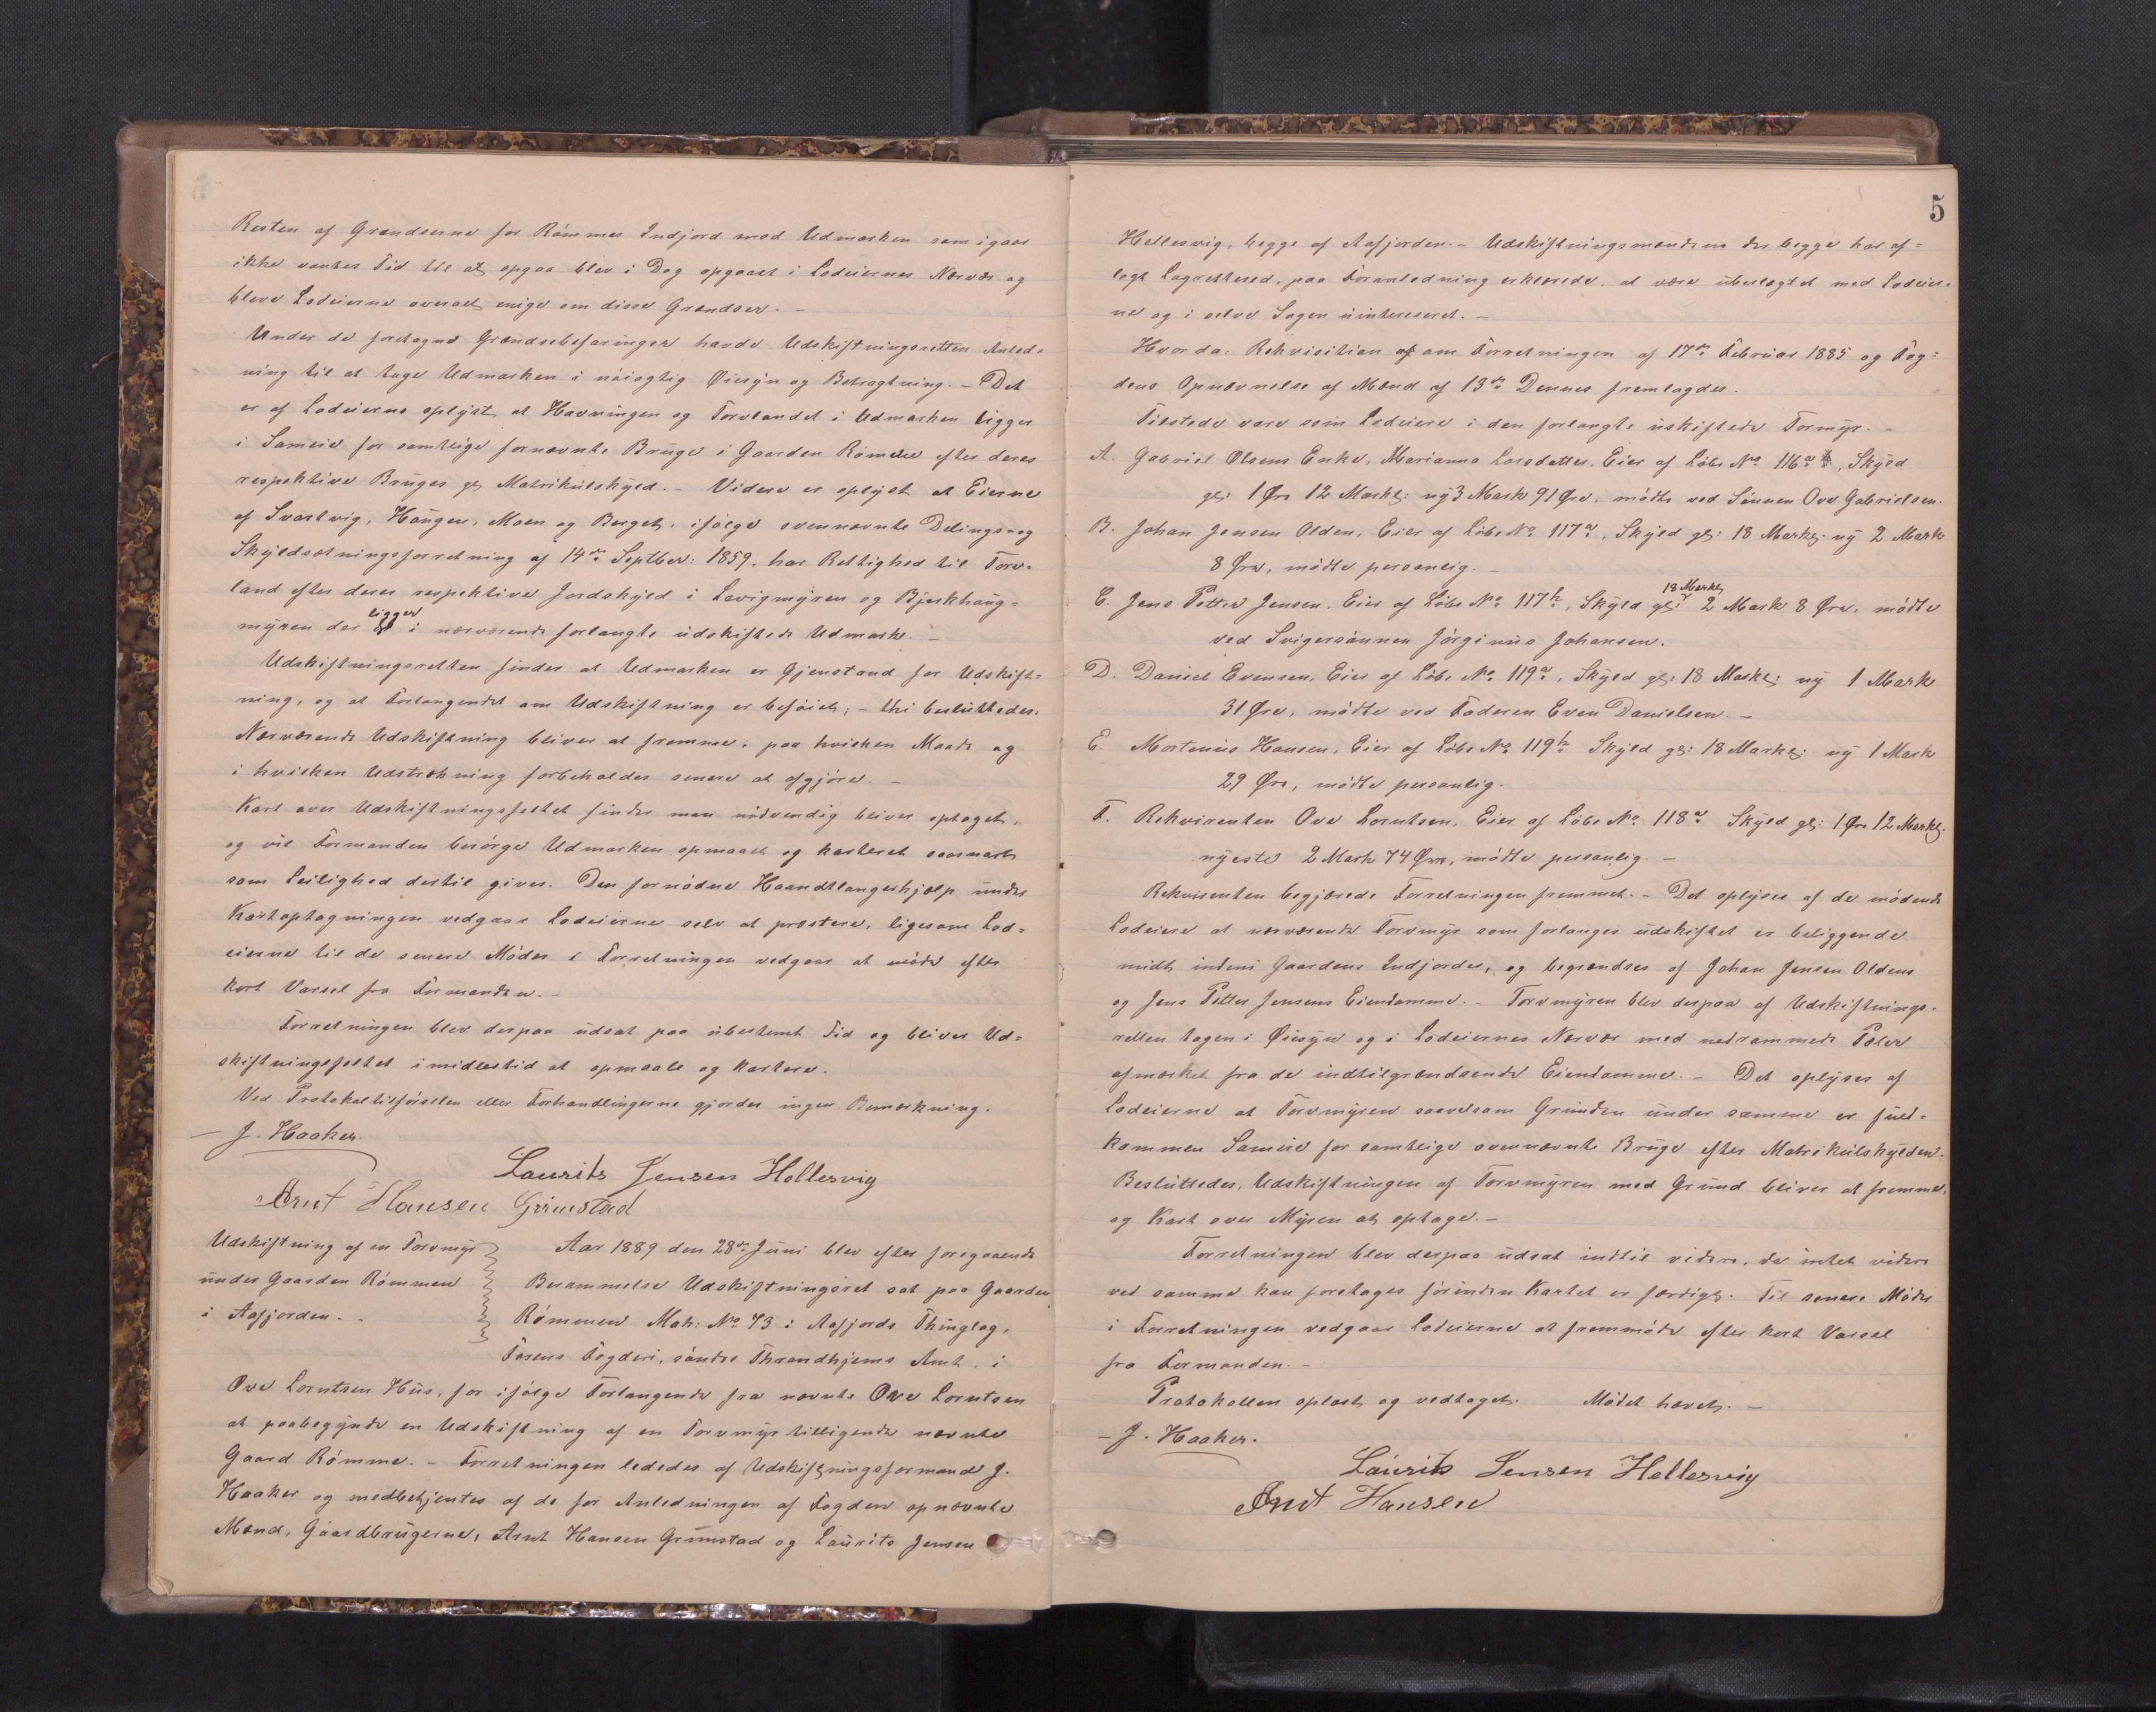 Resten af Grændserne for Rømmes Indjord med Udmarken som igaar
ikke vantes Tid til at opgaa blev i Dag opgaaet i Lodeiernes Nærvær og
bleve Lodeierne overalt enige om disse Grændser. –
Under de foretagne Grændsebefaringer havde Udskiftningsretten Anled=
ning til at tage Udmarken i nøiagtig Øiesyn og Betragtning. – Det
er af Lodeierne oplyst at Havningen og Torvlandet i Udmarken ligger
i Sameie for samtlige fornævnte Bruge i Gaarden Rømme efter deres
respektive Bruges gl Matrikulskyld. – Videre er oplyst at Eierne
af Svartvig, Haugen, Moen og Berget, ifølge ovennævnte Delings- og
Skyldsætningsforretning af 14de Septber: 1859, har Rettighed til Torv=
land efter deres respektive Jordskyld i Lævigmyren og Bjerkhaug=
myren der ligger i nærværende forlangte udskiftede Udmark. –
Udskiftningsretten finder at Udmarken er Gjenstand for Udskift=
ning, og at Forlangendet om Udskiftning er beføiet; – thi besluttedes:
Nærværende Udskiftning bliver at fremme; paa hvilken Maade og
i hvilken Udstrækning forbeholdes senere at afgjøre. –
Kart over Udskiftningsfeltet finder man nødvendig bliver optaget,
og vil Formanden besørge Udmarken opmaalt og karteret saasnart
som Leilighed dertil gives. Den fornødne Haandtlangerhjælp under
Kartoptagningen vedgaar Lodeierne selv at præstere, ligesom Lod=
eierne til de senere Møder i Forretningen vedgaar at møde efter
kort Varsel fra Formanden. –
Forretningen blev derpaa udsat paa ubestemt Tid og bliver Ud=
skiftningsfeltet imidlertid at opmaale og kartere.
Ved Protokoltilførselen eller Forhandlingerne gjordes ingen Bemærkning.
– J. Haaker.
Laurits Jensen Hellesvig
Arnt Hansen Grimstad
Udskiftning af en Torvmyr
under Gaarden Rømmen
i Aafjorden. –
Aar 1889 den 28de Juni blev efter foregaaende
Berammelse Udskiftningsret sat paa Gaarden
Rømmen Matr: No 73 i Aafjords Thinglag,
Fosens Fogderi, søndre Throndhjems Amt, i
Ove Lorntsen Hus, for ifølge Forlangende fra nævnte Ove Lorntsen
at paabegynde en Udskiftning af en Torvmyr tilligende nævnte
Gaard Rømme. – Forretningen lededes af Udskiftningsformand J.
Haaker og medbetjentes af de for Anledningen af Fogden opnævnte
Mænd, Gaardbrugerne, Arnt Hansen Grimstad og Laurits Jensen
5
Hellesvig, begge af Aafjorden. – Udskiftningsmændene der begge har af=
lagt Lagretteed, paa Foranledning erklærede at være ubeslægtet med Lodeier=
ne og i selve Sagen uinteresseret. –
Hvorda: Rekvisition om Forretningen af 17de Februar 1885 og Fog=
dens Opnævnelse af Mænd af 13de Dennes fremlagdes.
Tilstede vare som Lodeiere i den forlangte uskiftede Tormyr. –
A. Gabriel Olsens Enke, Marianna Larsdatter, Eier af Løbe No 116a, Skyld
gl: 1 Øre 12 Markl: ny 3 Mark 91 Øre, mødte ved Sønnen Ove Gabrielsen.
B. Johan Jensen Olden, Eier af Løbe No 117a, Skyld gl: 18 Markl: ny 2 Mark
8 Øre, mødte personlig. –
C. Jens Petter Jensen, Eier af Løbe No 117b, Skyld gl: 18 Markl 2 Mark 8 Øre, mødte
ved Svigersønnen Jørginus Johansen.
D. Daniel Evensen, Eier af Løbe No 119a, Skyld gl: 18 Markl: ny 1 Mark
31 Øre, mødte ved Faderen Even Danielsen. –
E. Mortenius Hansen, Eier af Løbe No 119b Skyld gl: 18 Markl: ny 1 Mark
29 Øre, mødte personlig.
F. Rekvirenten Ove Lorntsen, Eier af Løbe No 118a Skyld gl: 1 Øre 12 Markl:
nyeste 2 Mark 74 Øre, mødte personlig. –
Rekvirenten begjærede Forretningen fremmet. – Det oplyses af de mødende
Lodeiere at nærværende Torvmyr som forlanges udskiftet er beliggende
midt indeni Gaardens Indjorder, og begrændses af Johan Jensen Oldens
og Jens Petter Jensens Eiendomme. – Torvmyren blev derpaa af Udskiftnings=
retten tagen i Øiesyn og i Lodeiernes Nærvær med nedrammede Pæler
afmærket fra de indtilgrændsende Eiendomme. – Det oplyses af
Lodeierne at Torvmyren saavelsom Grunden under samme er fuld=
kommen Sameie for samtlige ovennævnte Bruge efter Matrikulskylden.
Besluttedes, Udskiftningen af Torvmyren med Grund bliver at fremme,
og Kart over Myren at optage. –
Forretningen blev derpaa udsat indtil videre, da intet videre
ved samme kan foretages førinden Kartet er færdigt. Til senere Møder
i Forretningen vedgaar Lodeierne at fremmøde efter kort Varsel
fra Formanden. –
Protokollen oplæst og vedtaget. Mødet hævet. –
– J. Haaker.
Laurits Jensen Hellesvig
Arnt Hansen